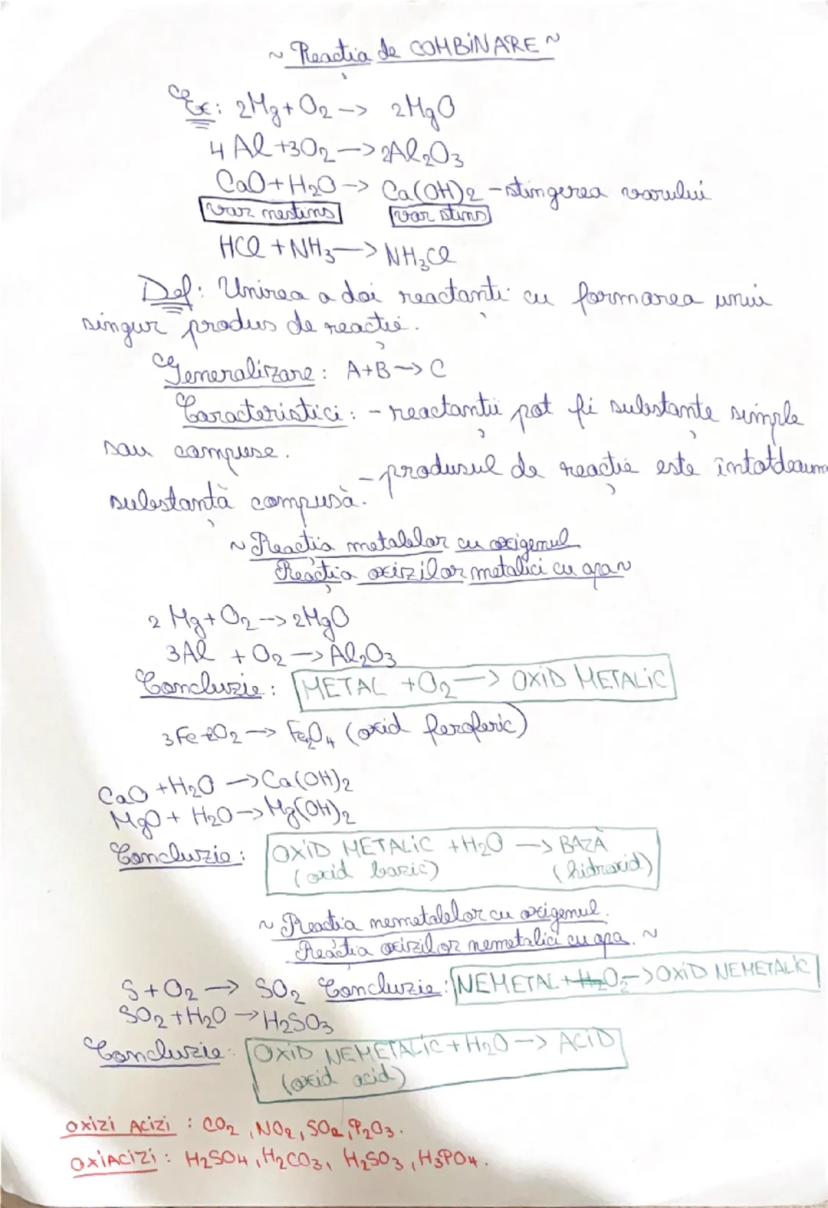 ~ Reacția de COMBINARE ~
Ex: 2Mg + O2 -> 2MgO
4 Al +3O2 -> 2Al2O3
CaO + H2O -> Ca(OH)2 - stingerea varului
var nestins var stins
HCl + NH3 -> NH3Cl
Def: Unirea a doi reactanți cu formarea unui
singur produs de reacție.
Generalizare: A+B -> C
Caracteristici: - reactanții pot fi substanțe simple
sau compuse.
- produsul de reacție este întotdeauna
substanță compusă.
~ Reacția metalelor cu oxigenul
Reacția oxizilor metalici cu apa ~
2 Mg + O2 -> 2MgO
3Al + O2 -> Al2O3
Concluzie: METAL + O2 -> OXID METALIC
3Fe+2O2 -> Fe3O4 (oxid feroferic)
CaO + H2O -> Ca(OH)2
MgO + H2O -> Mg(OH)2
Concluzie: OXID METALIC + H2O -> BAZĂ
(oxid bazic) (hidroxid)
~ Reacția nemetalelor cu oxigenul.
Reacția oxizilor nemetalici cu apa. ~
S + O2 -> SO2 Concluzie: NEMETAL + O2 -> OXID NEMETALIC
SO2 + H2O -> H2SO3
Concluzie: OXID NEMETALIC + H2O -> ACID
(oxid acid)
OXIZI ACIZI : CO2, NO2, SO2, P2O3.
OXIACIZI : H2SO4, H2CO3, H2SO3, H3PO4.